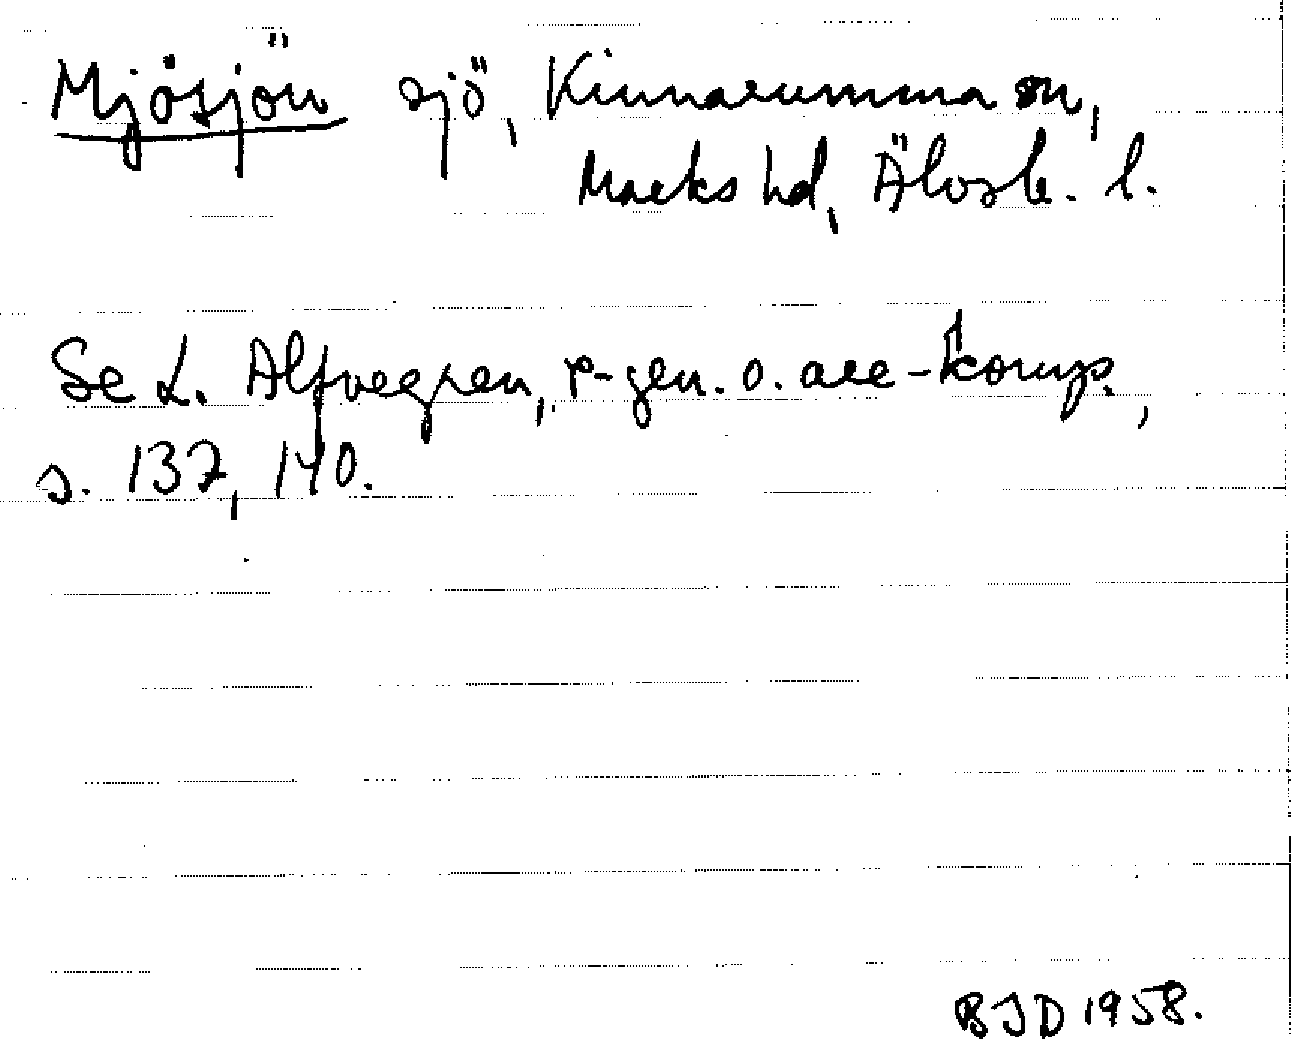 Mjösjön sjö, Kinnarumma sn,
Marks hd, Älvsb. l.
Se L. Alfvegren, r-gen. o. ack-komp.,
s. 137, 140.
BJD 1958.